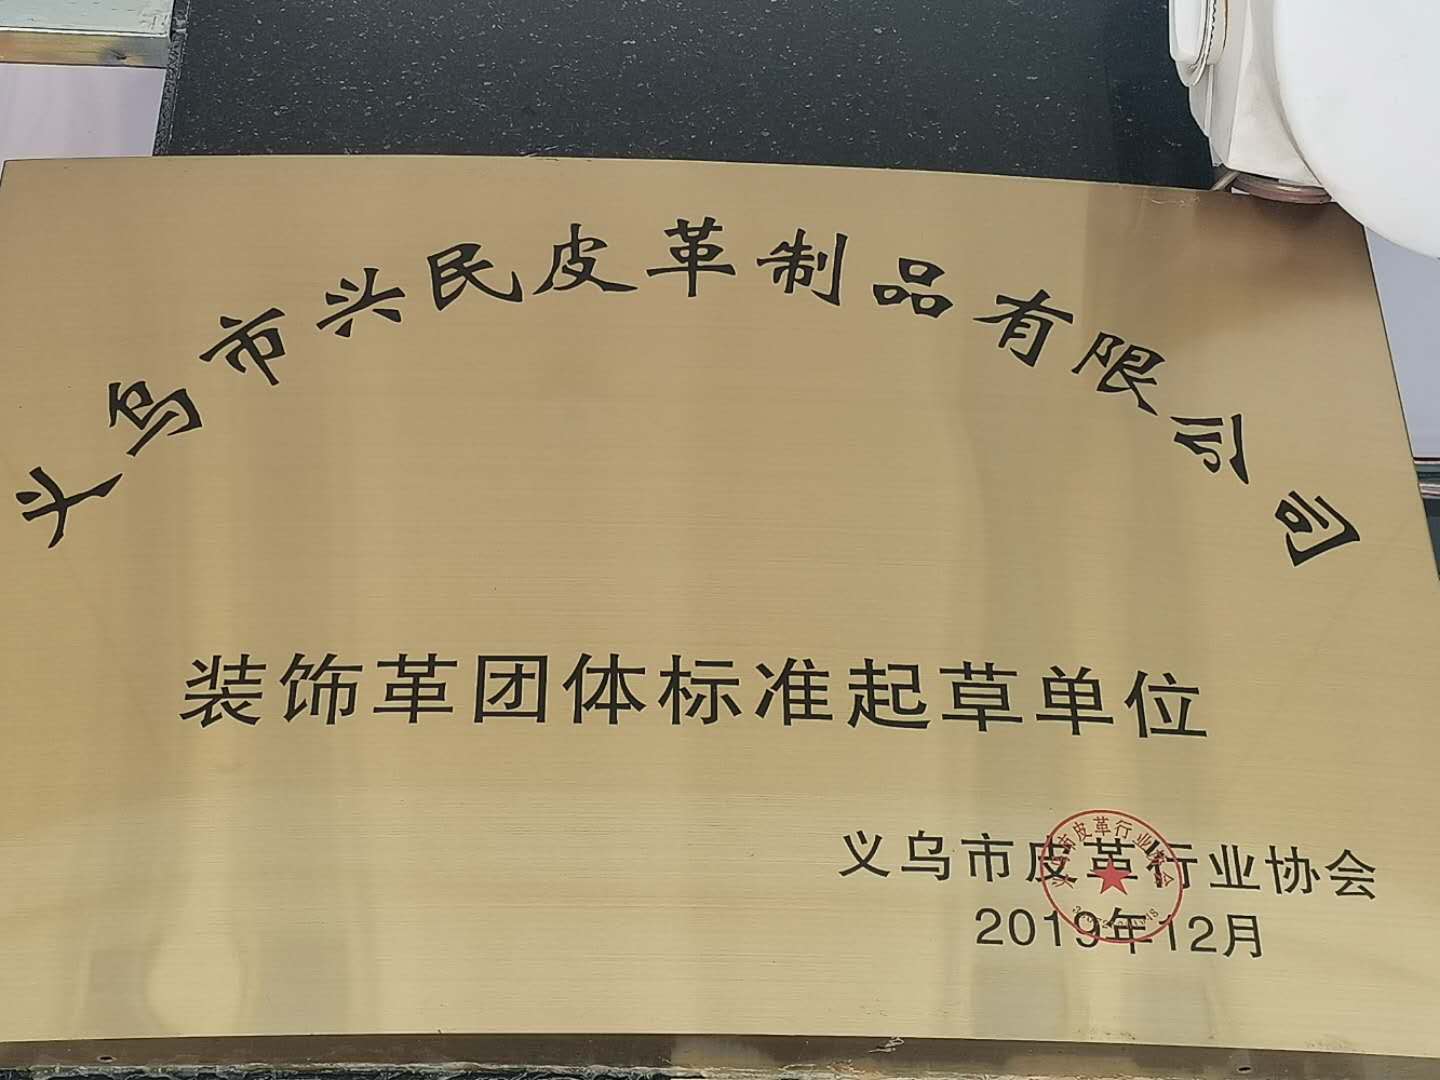 义乌市兴民皮革制品有限公司
装饰革团体标准起草单位
义乌市皮革行业协会
2019年12月
义乌市皮革行业协会